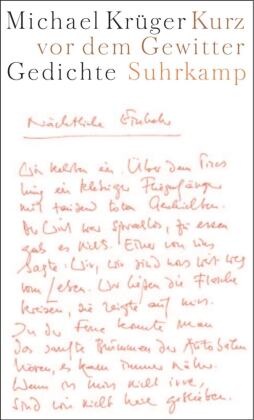 Michael Krüger Kurz
vor dem Gewitter
Gedichte Suhrkamp
Nächtliche Einkehr
Wir kehrten ein. Über dem Tresen
hing ein klebriger Fliegenfänger
mit tausend toten Geschichten.
Der Wirt war sprachlos, zu essen
gab es nichts. Einer von uns
sagte: Wir, wir sind noch weit weg
vom Leben. Wir ließen die Flasche
kreisen, die zeigte auf mich.
In der Ferne konnte man
das sanfte Brummen der Autobahn
hören, es kam immer näher.
Wenn ich mich nicht irre,
sind wir nicht lange geblieben.